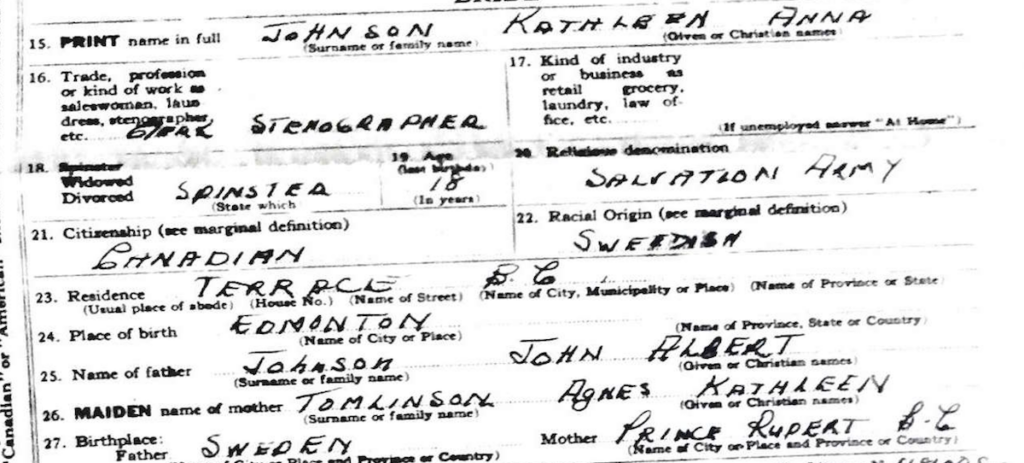 15. PRINT name in full JOHNSON KATHLEEN ANNA
(Surname or family name) (Given or Christian names)
16. Trade, profession
or kind of work as
saleswoman, laun
dress, stenographer,
etc. CLERK STENOGRAPHER
17. Kind of industry
or business as
retail grocery,
laundry, law of-
fice, etc.
(If unemployed answer "At Home")
18. Spinster
Widowed
Divorced SPINSTER
(State which
19. Age
(last birthday)
18
(In years)
20. Religious denomination
SALVATION ARMY
21. Citizenship (see marginal definition)
CANADIAN
22. Racial Origin (see marginal definition)
SWEEDISH
23. Residence TERRACE B.C.
(Usual place of abode) (House No.) (Name of Street) (Name of City, Municipality or Place) (Name of Province or State)
24. Place of birth EDMONTON
(Name of City or Place) (Name of Province, State or Country)
25. Name of father JOHNSON JOHN ALBERT
(Surname or family name) (Given or Christian names)
26. MAIDEN name of mother TOMLINSON AGNES KATHLEEN
(Surname or family name) (Given or Christian names)
27. Birthplace:
Father SWEDEN Mother PRINCE RUPERT B.C
(Name of City or Place and Province or Country) (Name of City or Place and Province or Country)
Canadian" or "American